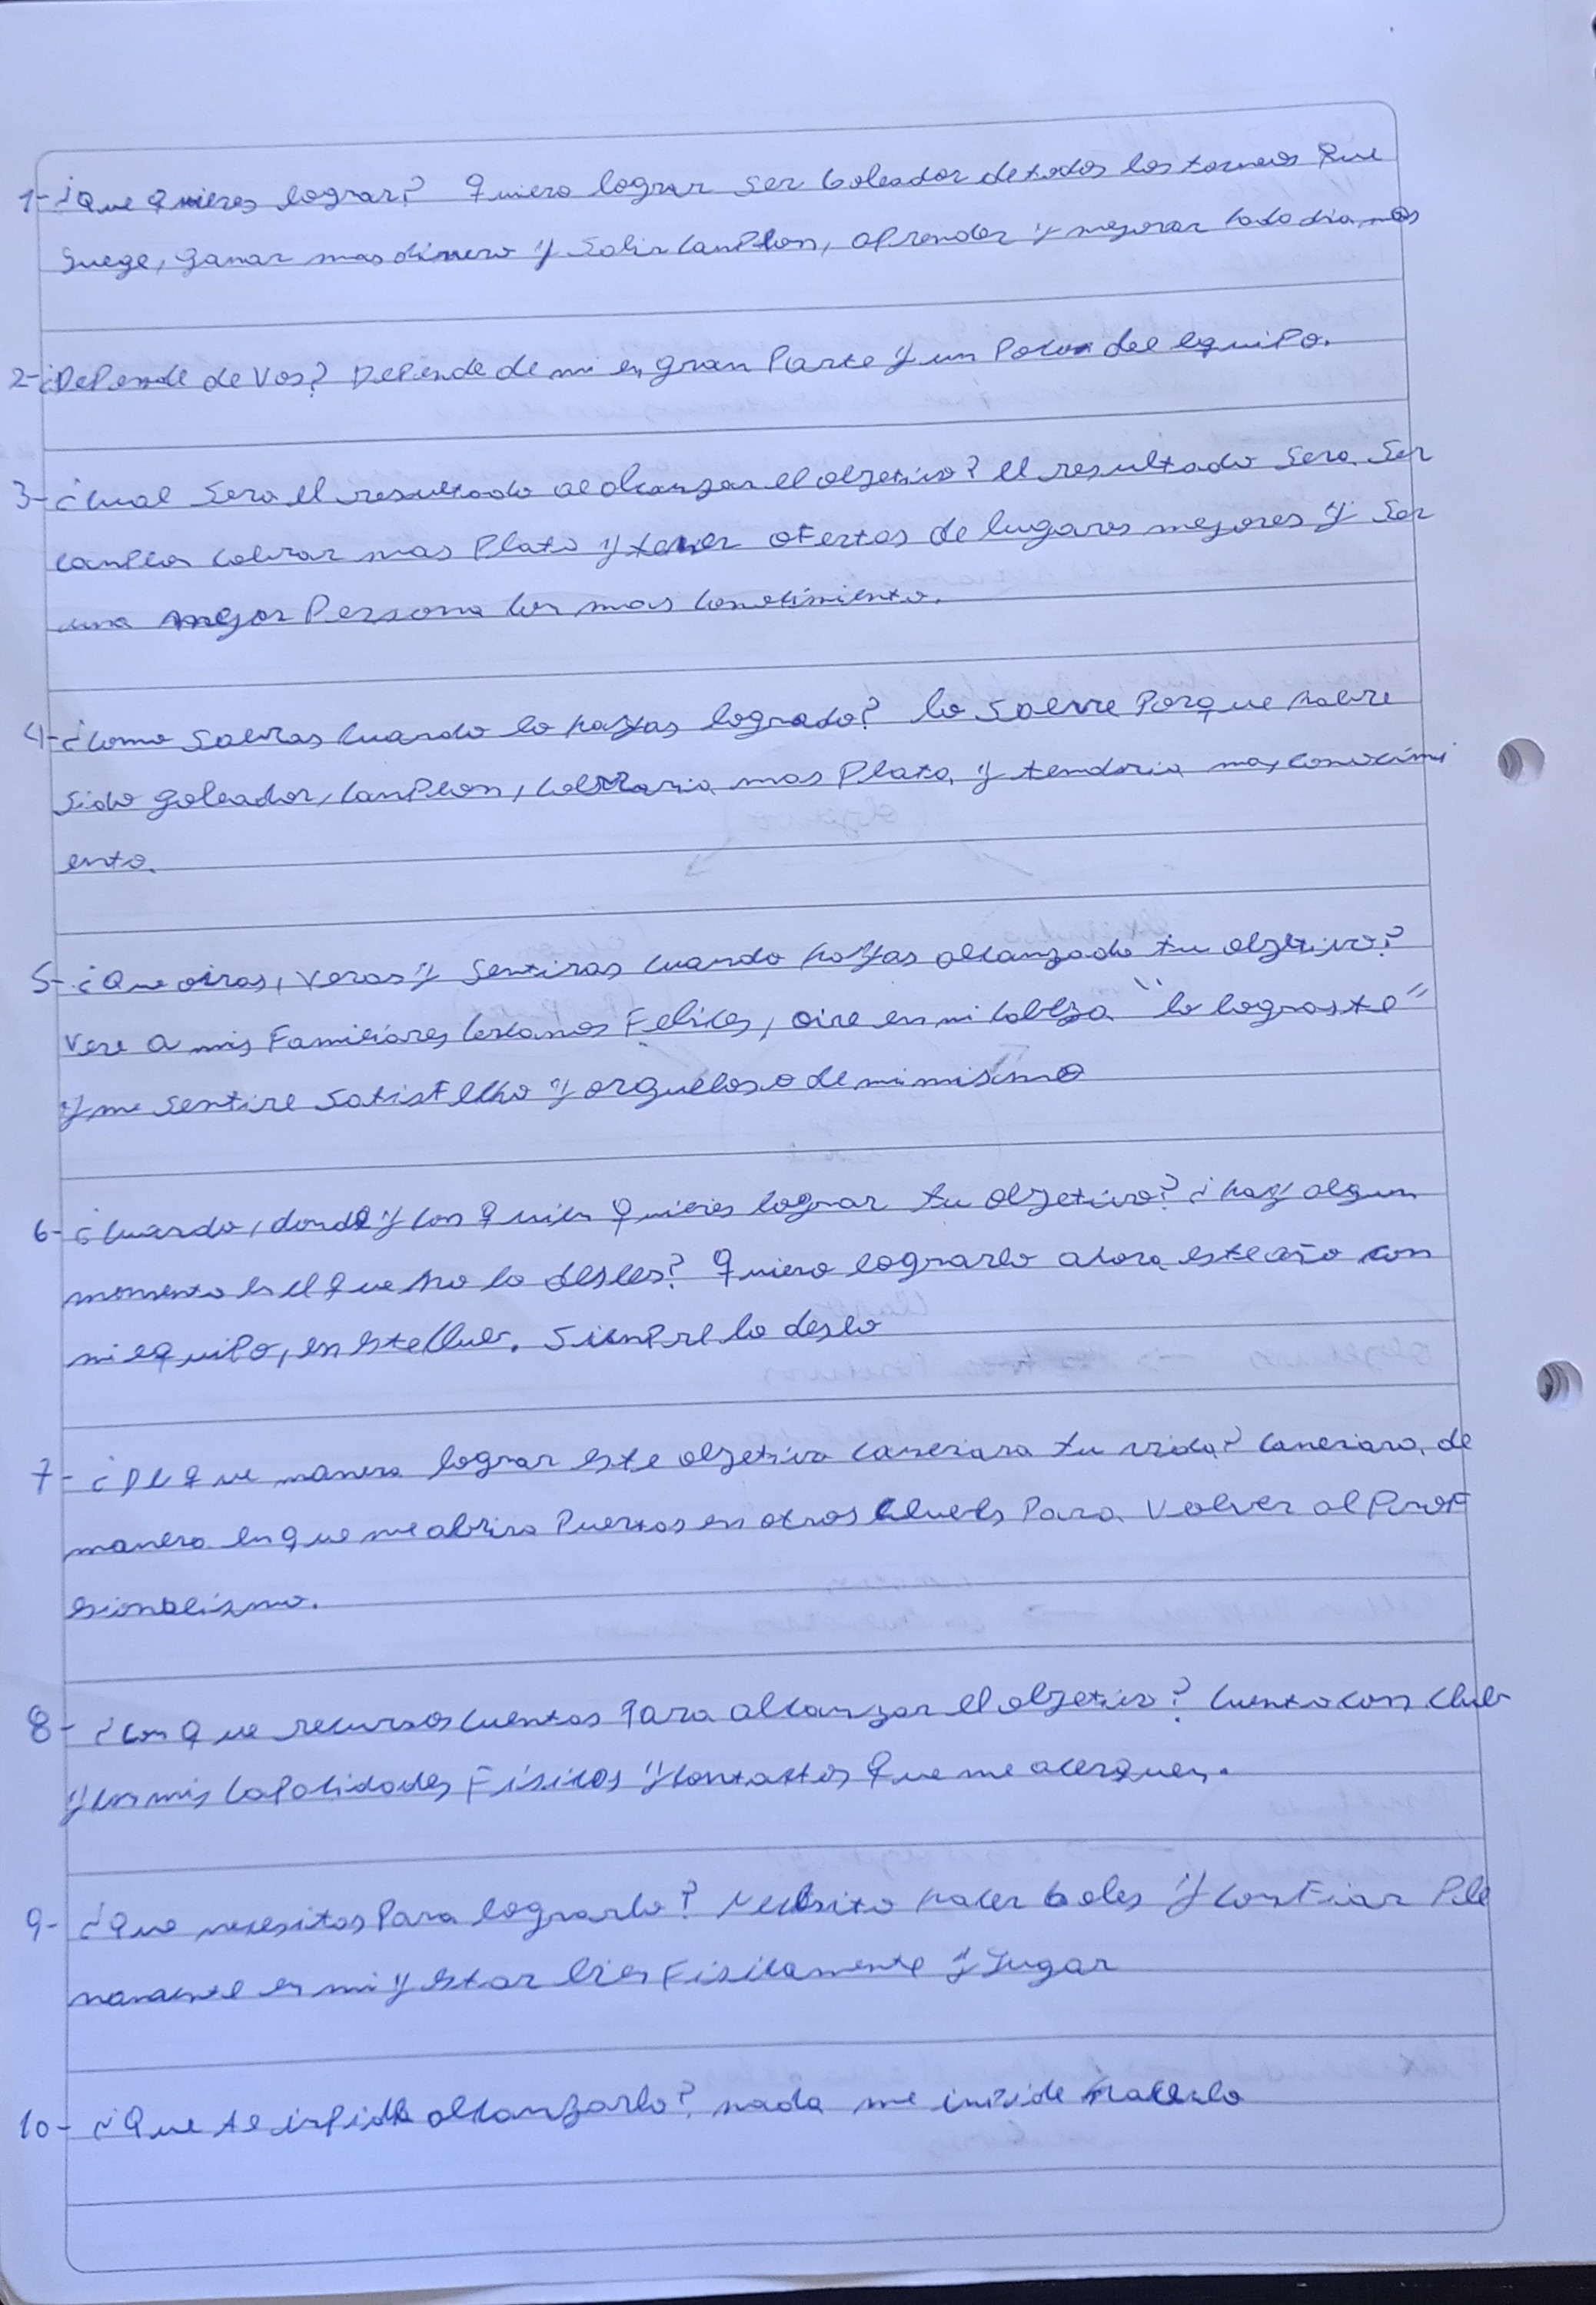 1- ¿Que Quieres lograr? Quiero lograr ser Goleador de todos los torneos Que
Juege, ganar mas dinero y Salir Canpion, aprender y mejorar cada dia mas
2- ¿Depende de Vos? Depende de mi en gran Parte y un Poco del equipo.
3- ¿Cual Sera el resultado al alcanzar el objetivo? el resultado Sera Ser
canpion cobrar mas Plata y tener ofertas de lugares mejores y Ser
una mejor Persona con mas conocimiento.
4- ¿Como Sabras cuando lo hayas logrado? lo Sabre Porque habre
Sido goleador, canpion, cobraria mas Plata y tendria mas conocimi
ento.
5- ¿Que oiras, Veras y Sentiras cuando hayas alcanzado tu objetivo?
Vere a mis Familiares cercanos Felices, oire en mi cabeza "lo lograste"
y me sentire satisfecho y orgulloso de mi mismo
6- ¿Cuando, donde y con Quien Quieres lograr tu objetivo? ¿hay algun
momento en el Que no lo desees? Quiero lograrlo ahora este año con
mi equipo, en este club. Sienpre lo deseo
7- ¿De Que manera lograr este objetivo canbiara tu vida? Canbiara de
manera en que me abrira Puertas en otros clubes Para Volver al Prof
esionalismo.
8- ¿Con Que recursos cuentas Para alcanzar el objetivo? Cuento con club
y con mis capacidades Fisicas y contactos Que me acerquen.
9- ¿Que necesitas Para lograrlo? Necesito hacer Goles y conFiar Ple
namente en mi y estar bien Fisicamente y Jugar
10- ¿Que te inpide alcanzarlo? nada me inpide hacerlo